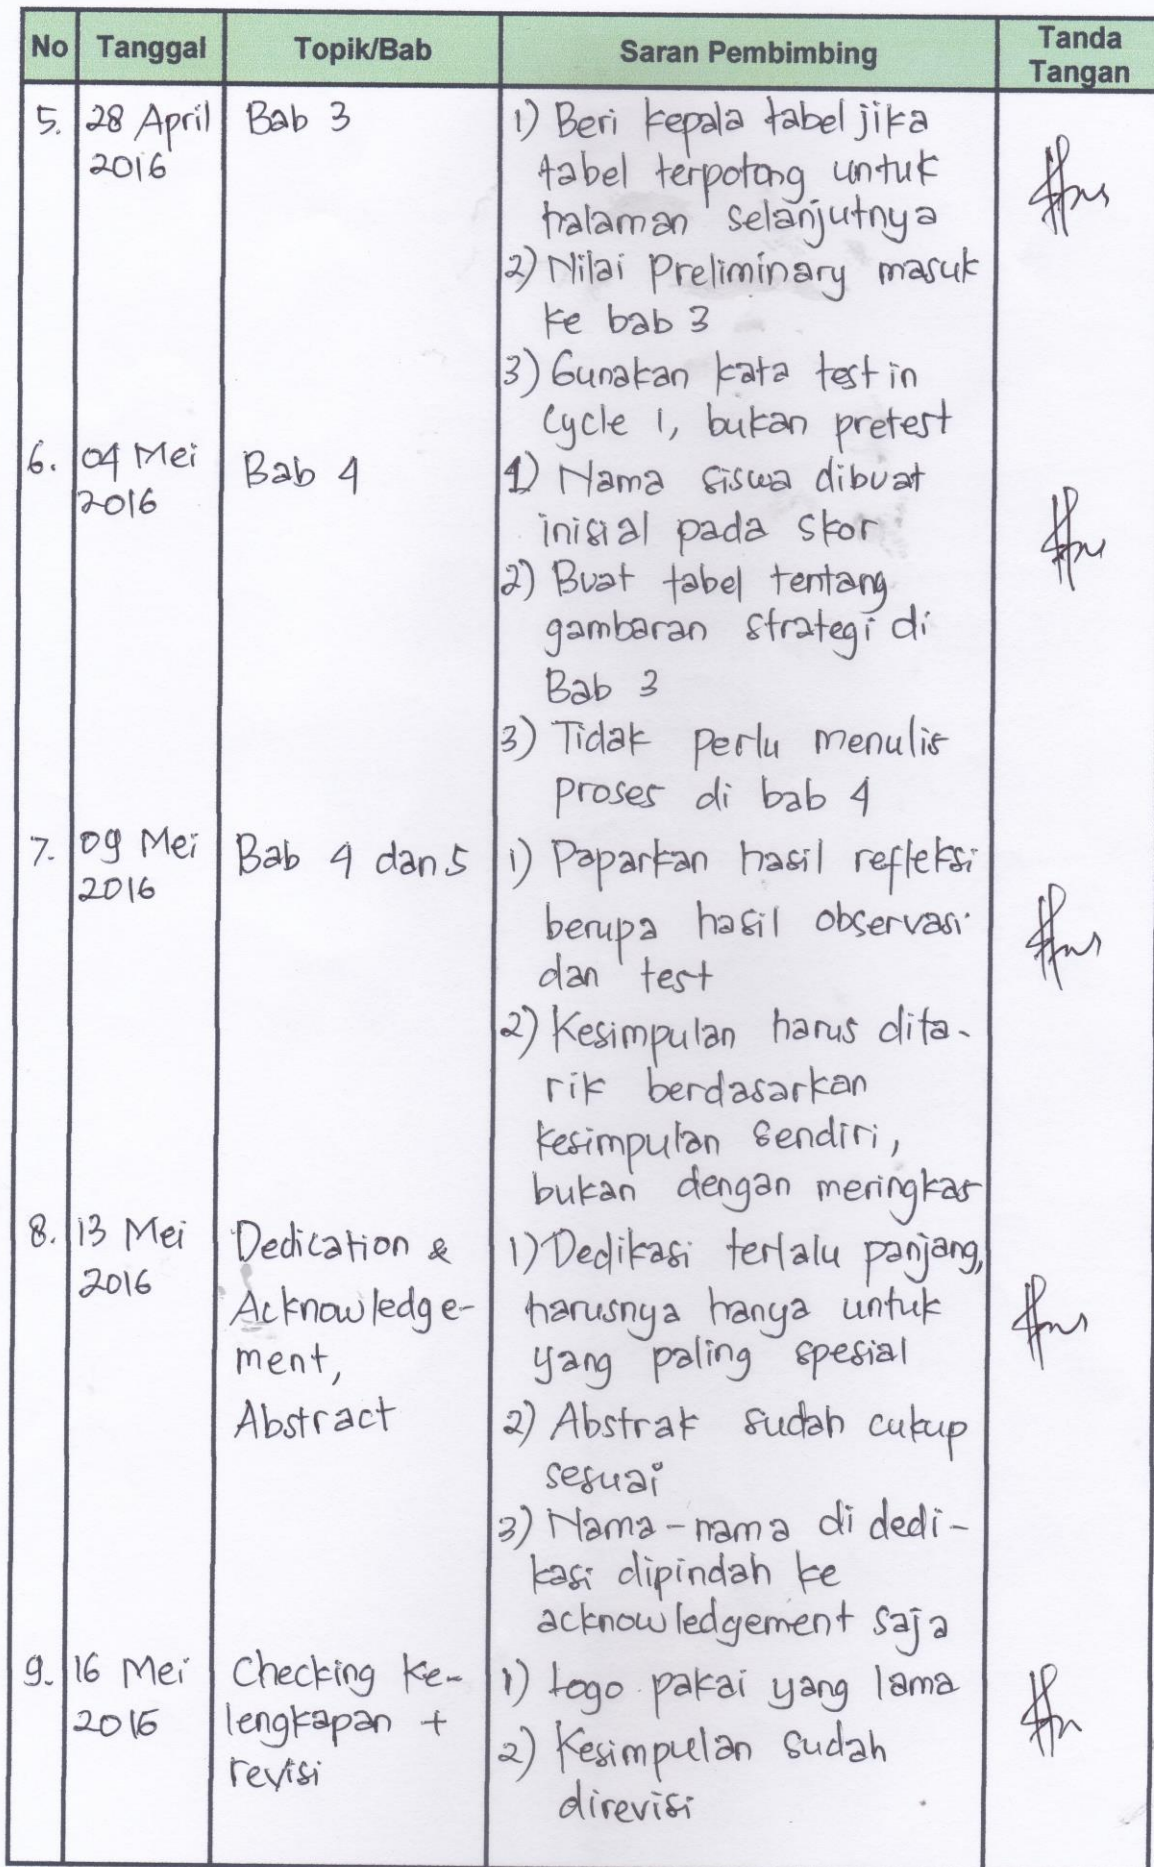 No Tanggal Topik/Bab Saran Pembimbing Tanda Tangan
5. 28 April 2016 Bab 3
1) Beri kepala tabel jika
tabel terpotong untuk
halaman selanjutnya
2) Nilai Preliminary masuk
ke bab 3
3) Gunakan kata test in
Cycle 1, bukan pretest
6. 04 Mei 2016 Bab 4
1) Nama siswa dibuat
inisial pada skor
2) Buat tabel tentang
gambaran strategi di
Bab 3
3) Tidak perlu menulis
proses di bab 4
7. 09 Mei 2016 Bab 4 dan 5
1) Paparkan hasil refleksi
berupa hasil observasi
dan test
2) Kesimpulan harus dita-
rik berdasarkan
kesimpulan sendiri,
bukan dengan meringkas
8. 13 Mei 2016
Dedication &
Acknowledge-
ment,
Abstract
1) Dedikasi terlalu panjang,
harusnya hanya untuk
yang paling spesial
2) Abstrak sudah cukup
sesuai
3) Nama-nama di dedi-
kasi dipindah ke
acknowledgement saja
9. 16 Mei 2016
Checking ke-
lengkapan +
revisi
1) Logo pakai yang lama
2) Kesimpulan sudah
direvisi